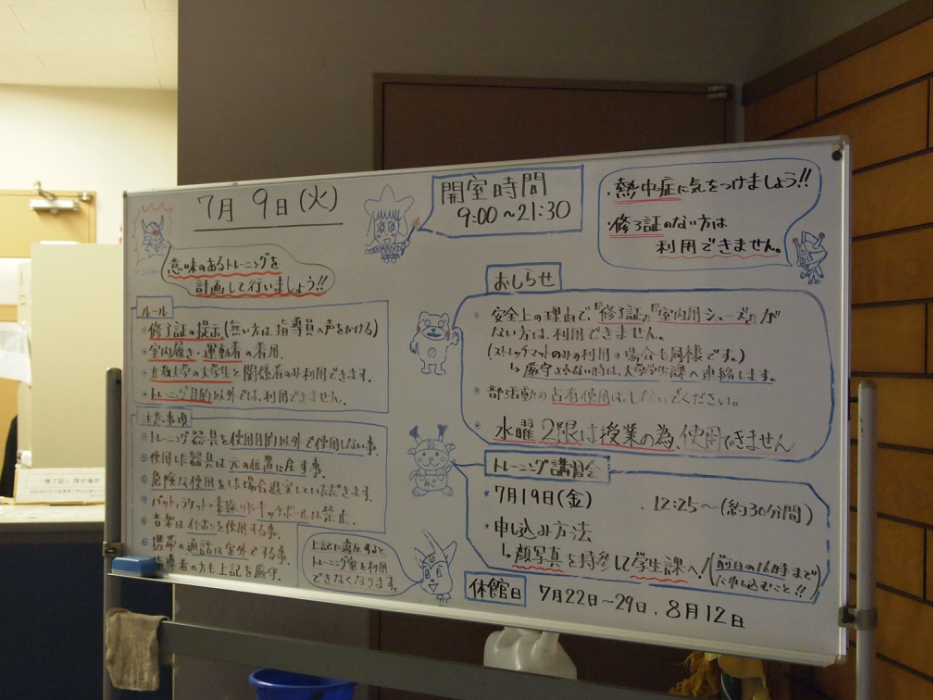 7月 9日(火)
開室時間
9:00~21:30
・熱中症に気をつけましょう!!
・修了証のない方は
利用できません。
意味のあるトレーニングを
計画して行いましょう!!
ルール
◎修了証の提示(無い方は、指導員へ声をかける)
◎室内履き・運動着の着用。
◎立教大学の大学生と関係者のみ利用できます。
◎トレーニング目的以外では、利用できません。
注意事項
◎トレーニング器具を使用目的以外で使用しない事。
◎使用した器具は元の位置に戻す事。
◎危険な使用をした場合退室していただきます。
◎バット、ラケット・素振り
は禁止。
◎音楽は
を使用する事。
◎携帯の通話は室外でする事。
指導者の方も上記を厳守。
上記に違反すると
トレーニング室を利用
できなくなります。
おしらせ
◎安全上の理由で、『修了証』『室内用シューズ』が
ない方は、利用できません。
(ストレッチマットのみの利用の場合も同様です。)
↳厳守されない時は、大学学生課へ連絡します。
◎部活動の占有使用はしないでください。
◎水曜2限は授業の為、使用できません
トレーニング講習会
・7月19日(金) 12:25~(約30分間)
・申し込み方法
↳顔写真を持参して学生課へ!(前日の16時まで
に申し込むこと!!)
休館日 7月22日~29日、8月12日